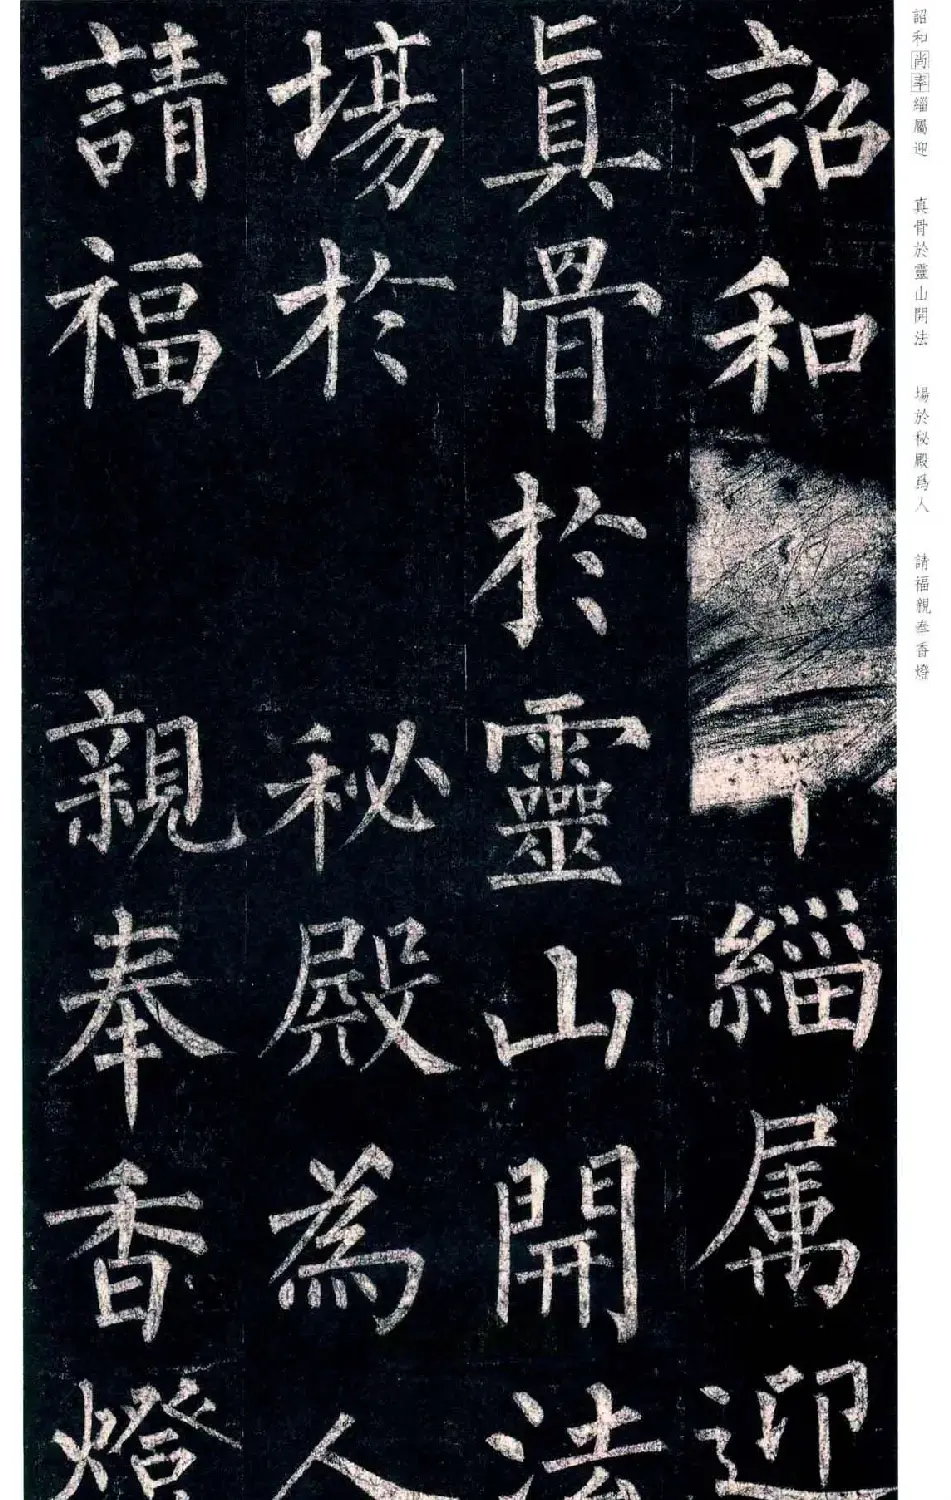 詔和緇属迎
真骨於靈山開法
場於秘殿為人
請福親奉香燈
詔和尚率緇屬迎
真骨於靈山開法
場於秘殿爲人
請福親奉香燈